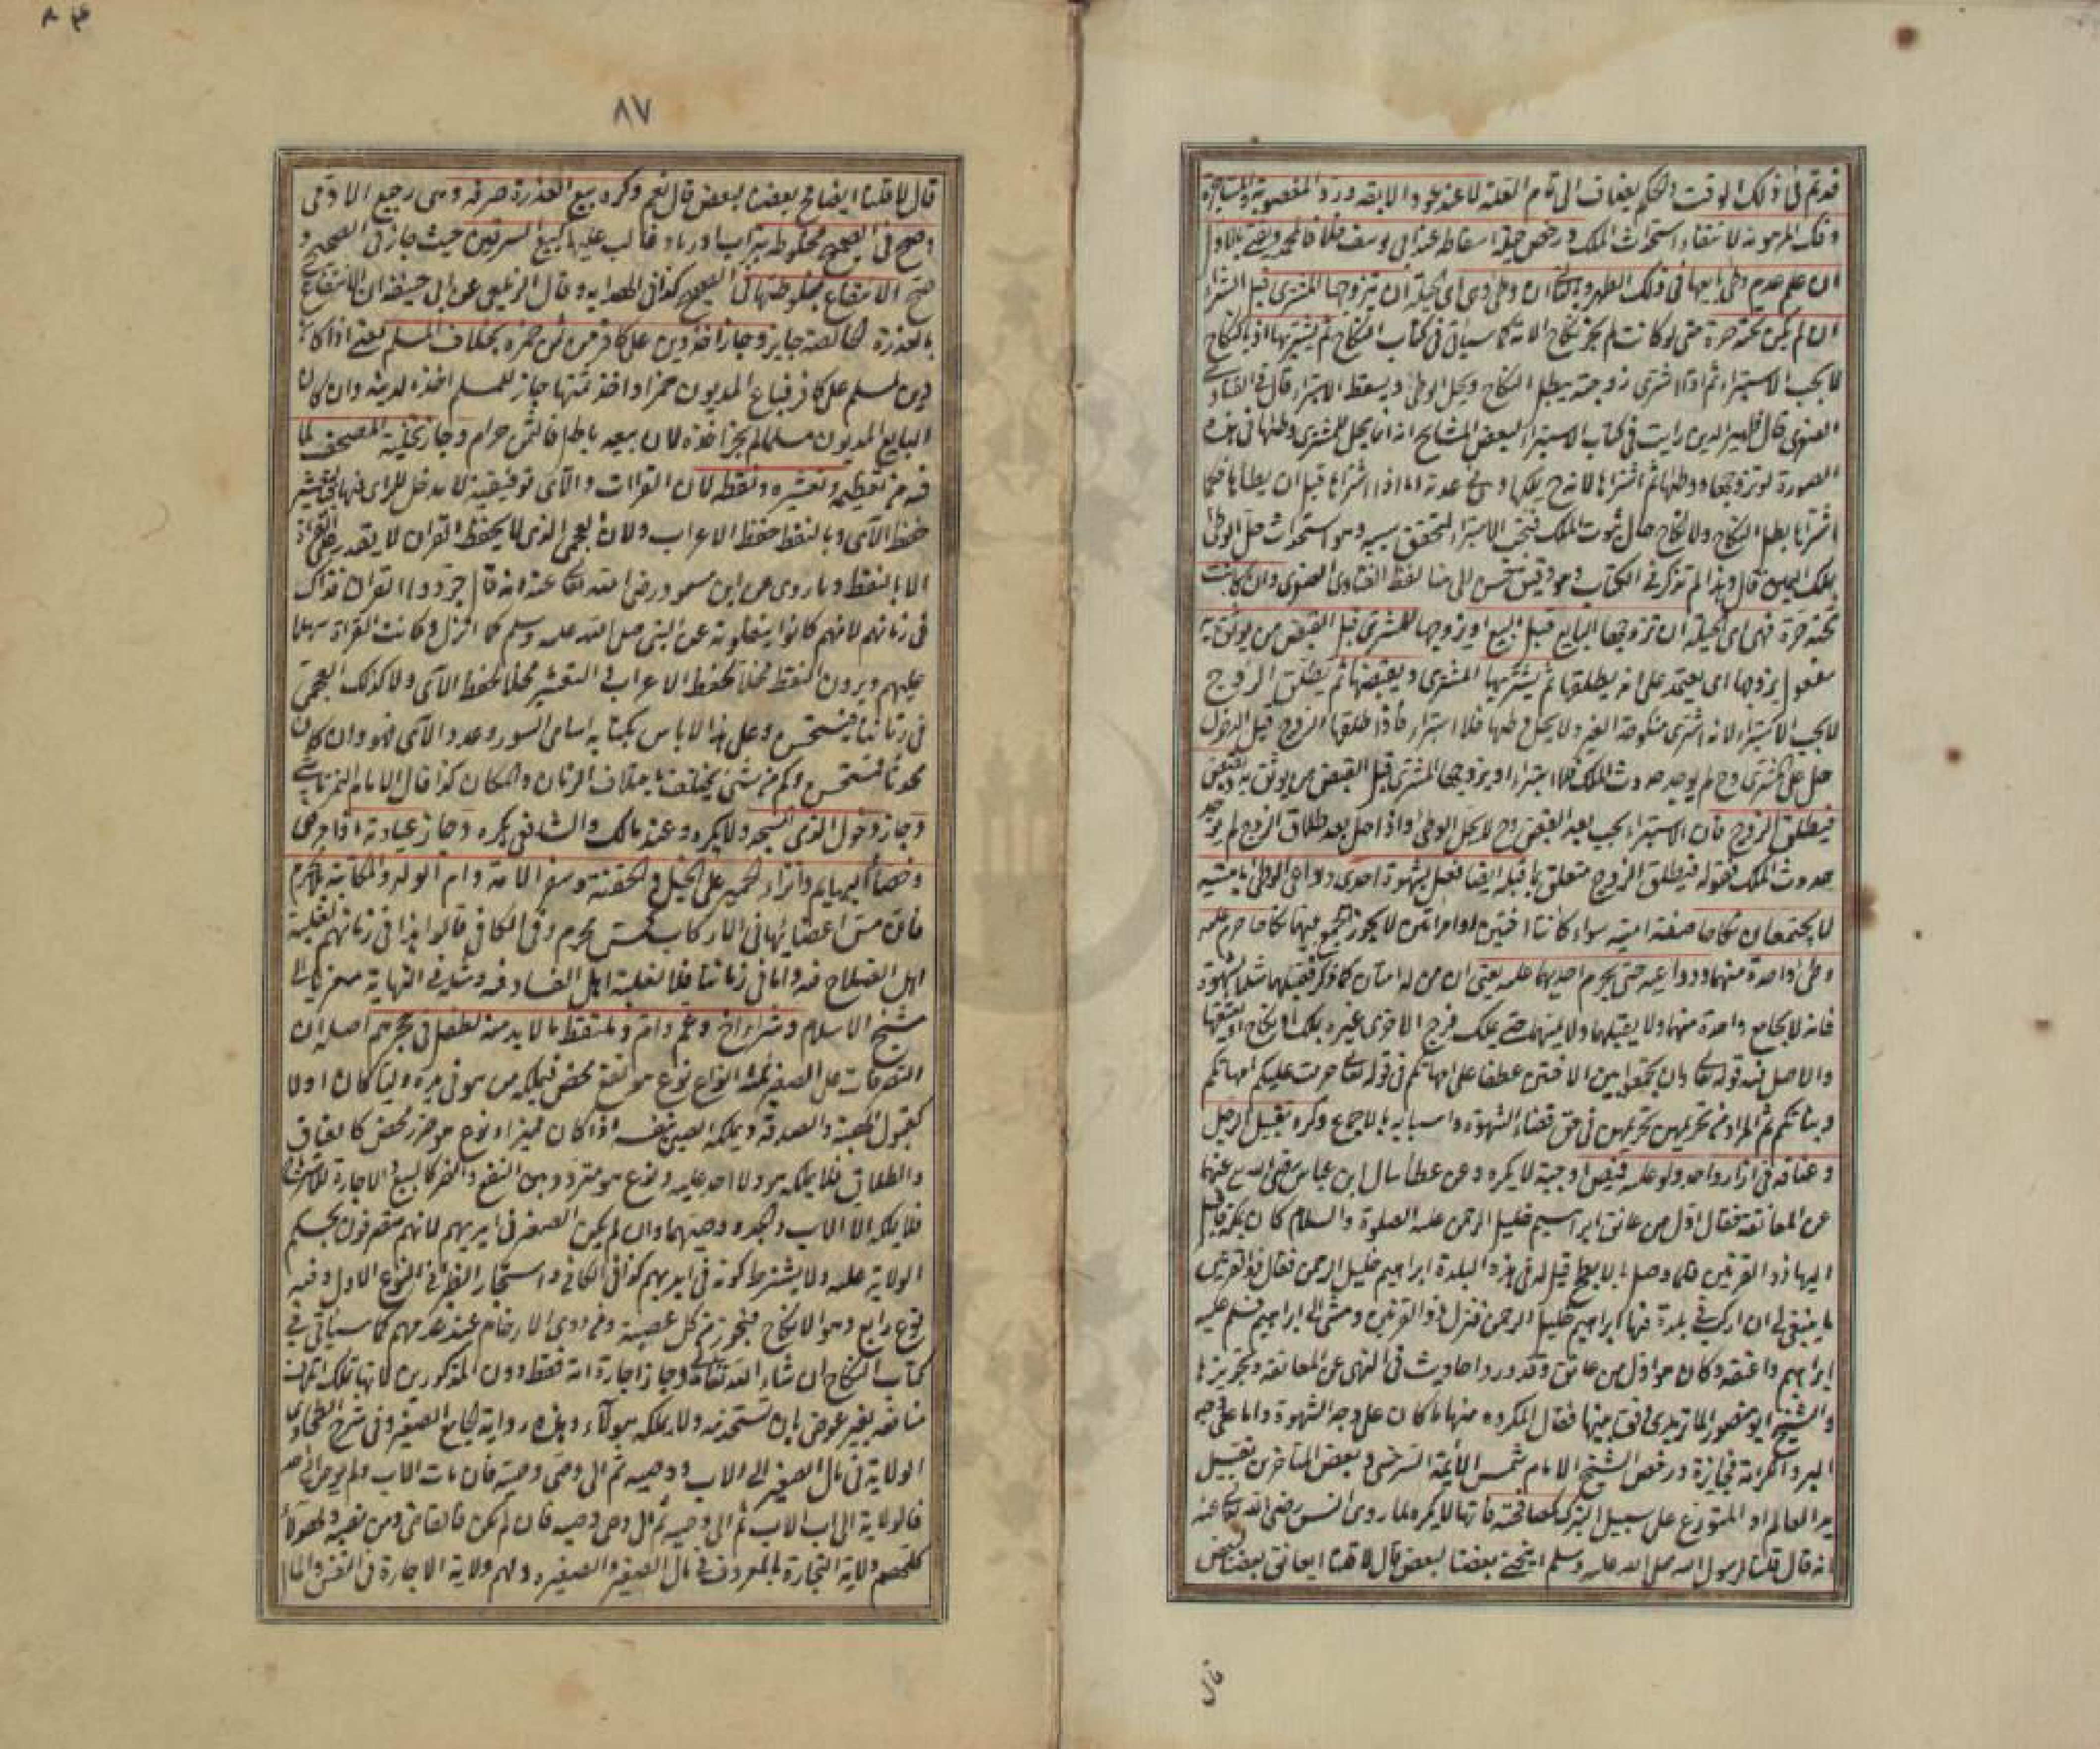 قدتم في ذلك الوقت والحكم يضاف الى تمام العلة لا عند عود الابقة ورد المغصوبة والمستأجرة
وفك المرهونة لانتفاء استحداث الملك ورخص حيلة اسقاطه عند ابي يوسف خلافا لمحمد ويفتى بالاول
ان علم عدم وطئ بايعها في ذلك الطهر وبالثاني ان وطئ وهي اي الحيلة ان يتزوجها المشتري قبل الشراء
ان لم يكن تحته حرة حتى لو كانت لم يجز نكاح الامة كما سيأتي في كتاب النكاح ثم يشتريها اذ بالنكاح
لا يجب الاستبراء ثم اذا اشترى زوجته يبطل النكاح ويحل الوطئ ويسقط الاستبراء قال في الفتاوى
الصغرى قال ظهير الدين رايت في كتاب الاستبراء لبعض المشايخ انه انما يحل للمشتري وطئها في هذه
الصورة لو تزوجها ووطئها ثم اشتراها لانه ح يملكها وهي في عدته اما اذا اشتراها قبل ان يطأها فكما
اشتراها بطل النكاح ولا نكاح حال ثبوت الملك فيجب الاستبراء لتحقق سببه وهو استحداث حل الوطئ
بملك اليمين قال وهذا لم يذكر في الكتاب وهو دقيق حسن الى هنا لفظ الفتاوى الصغرى وان كانت
تحته حرة فهي اي الحيلة ان يزوجها البايع قبل البيع او يزوجها المشتري قبل القبض من يوثق به
مفعول يزوجها اي يعتمد على انه يطلقها ثم يشتريها المشتري ويقبضها ثم يطلق الزوج
لا يجب الاستبراء لانه اشترى منكوحة الغير ولا يحل وطئها فلا استبراء فاذا طلقها الزوج قبل الدخول
حل على المشتري وح لم يوجد حدوث الملك فلا استبراء او يزوجها المشتري قبل القبض من يوثق به ويقبض
فيطلق الزوج فان الاستبراء يجب بعد القبض وح لا يحل الوطئ واذا حل بعد طلاق الزوج لم يوجد
حدوث الملك فقوله فيطلق الزوج متعلق بما قبله ايضا فعل بشهوة احدى دواعي الوطئ بامتيه
لا يجتمعان نكاحا صفة امتيه سواء كانتا اختين او امراتين لا يجوز الجمع بينهما نكاحا حرم عليه
وطئ واحدة منهما ودواعيه حتى يحرم احديهما عليه يعني ان من له امتان كما ذكر فقبلهما مثلا بشهوة
فانه لا يجامع واحدة منهما ولا يقبلهما ولا يمسهما حتى يملك فرج الاخرى غيره بملك او نكاح او يعتقها
والاصل فيه قوله تعالى وان تجمعوا بين الاختين عطفا على امهاتكم في قوله تعالى حرمت عليكم امهاتكم
وبناتكم ثم المراد من تحريمهن تحريمهن في حق قضاء الشهوة واسبابه بالاجماع وكره تقبيل الرجل
وعناقه في ازار واحد ولو عليه قميص او جبة لا يكره وعن عطا سال ابن عباس رضي الله تعالى عنهما
عن المعانقة فقال اول من عانق ابراهيم خليل الرحمن عليه الصلوة والسلام كان بمكة فاقبل
اليها ذو القرنين فلما وصل بالابطح قيل له في هذه البلدة ابراهيم خليل الرحمن فقال ذو القرنين
ما ينبغي لي ان اركب في بلدة فيها ابراهيم خليل الرحمن فنزل ذو القرنين ومشى الى ابراهيم فسلم عليه
ابراهيم واعتنقه وكان هو اول من عانق وقد ورد احاديث في النهي عن المعانقة وتجويزها
والشيخ ابو منصور الماتريدي وفق بينها فقال المكروه منها ما كان على وجه الشهوة واما على وجه
البر والكرامة فجايزة ورخص الشيخ الامام شمس الائمة السرخسي وبعض المتاخرين تقبيل
يد العالم او المتورع على سبيل التبرك كمصافحته فانها لا يكره لما روى انس رضي الله تعالى عنه
انه قال قلنا لرسول الله صلى الله عليه وسلم اينحني بعضنا لبعض قال لا قلنا ايعانق بعضنا لبعض
قال
٨٧
قال لا قلنا ايصافح بعضنا لبعض قال نعم وكره بيع العذرة صرفة وهي رجيع الادمي
وصح في الصحيح مخلوطة بتراب او رماد غالب عليها كبيع السرقين حيث جاز في الصحيح و
صح الانتفاع بمخلوطها في الصحيح كذا في الهداية وقال الزيلعي عن ابي حنيفة ان الانتفاع
بالعذرة الخالصة جايز وجاز اخذ دين على كافر من ثمن خمره بخلاف المسلم يعني اذا كان
دين لمسلم على كافر فباع المديون خمرا واخذ ثمنها جاز للمسلم اخذه لدينه وان كان
البايع المديون مسلما لم يجز اخذه لان بيعه باطل فالثمن حرام وجاز تحلية المصحف لما
فيه من تعظيمه وتعشيره ونقطه لان القرات والآي توقيفية لا مدخل للراي فيها فبالتعشير
حفظ الآي وبالنقط حفظ الاعراب ولان العجمي الذي لا يحفظ القران لا يقدر على القراءة
الا بالنقط وما روي عن ابن مسعود رضي الله تعالى عنه انه قال جردوا القران فذاك
في زمانهم لانهم كانوا ينقلونه عن النبي صلى الله عليه وسلم كما انزل وكانت القراة سهلا
عليهم ويرون النقط مخلا لحفظ الاعراب والتعشير مخلا لحفظ الآي ولا كذلك العجمي
في زماننا فيستحسن وعلى هذا لا باس بكتابة اسامي السور وعدد الآي فهو وان كان
محدثا فمستحسن وكم من شئ يختلف باختلاف الزمان والمكان كذا قال الامام التمرتاشي
وجاز دخول الذمي المسجد ولا يكره وعند مالك والشافعي يكره وجاز عيادته اذا مرض
وخصاء البهايم وانزاء الحمير على الخيل والحقنة وسفر الامة وام الولد والمكاتبة بلا محرم
فان مس اعضائها في الاركاب كمس محرم وفي الكافي قالوا هذا في زمانهم لغلبة
اهل الصلاح فيه واما في زماننا فلا لغلبة اهل الفساد فيه ومثله في النهاية معزيا الى
شيخ الاسلام وشراء اخ وعم وام وملتقط ما لا بد منه لطفل في حجرهم اصله ان
التصرفات على الصغير ثلثة انواع نوع هو نفع محض فيملكه من هو في يده وليا كان اولا
كقبول الهبة والصدقة ويملكه الصبي بنفسه اذا كان مميزا ونوع هو ضرر محض كالعتاق
والطلاق فلا يملكه هو ولا احد عليه ونوع هو متردد بين النفع والضر كالبيع والاجارة للاسترباح
فلا يملكه الا الاب والجد ووصيهما وان لم يكن الصغير في ايديهم لانهم متصرفون بحكم
الولاية عليه ولا يشترط كونه في ايديهم كذا في الكافي واستيجار الظئر من النوع الاول وفيه
نوع رابع وهو الانكاح فيجوز من كل عصبة ومن ذوي الارحام عند عدمهم كما سيأتي في
كتاب النكاح ان شاء الله تعالى وجاز اجارة امه فقط دون المذكورين لانها تملك اتلاف
منافعه بغير عوض بان تستخدمه ولا يملكه هؤلاء وهذه رواية الجامع الصغير وفي شرح الطحاوي
الولاية في مال الصغير الى الاب ووصيه ثم الى وصي وصيه فان مات الاب ولم يوص الى احد
فالولاية الى اب الاب ثم الى وصيه ثم الى وصي وصيه فان لم يكن فالقاضي ومن نصبه ولهؤلاء
كلهم ولاية التجارة بالمعروف في مال الصغير والصغيرة ولهم ولاية الاجارة في النفس والمال